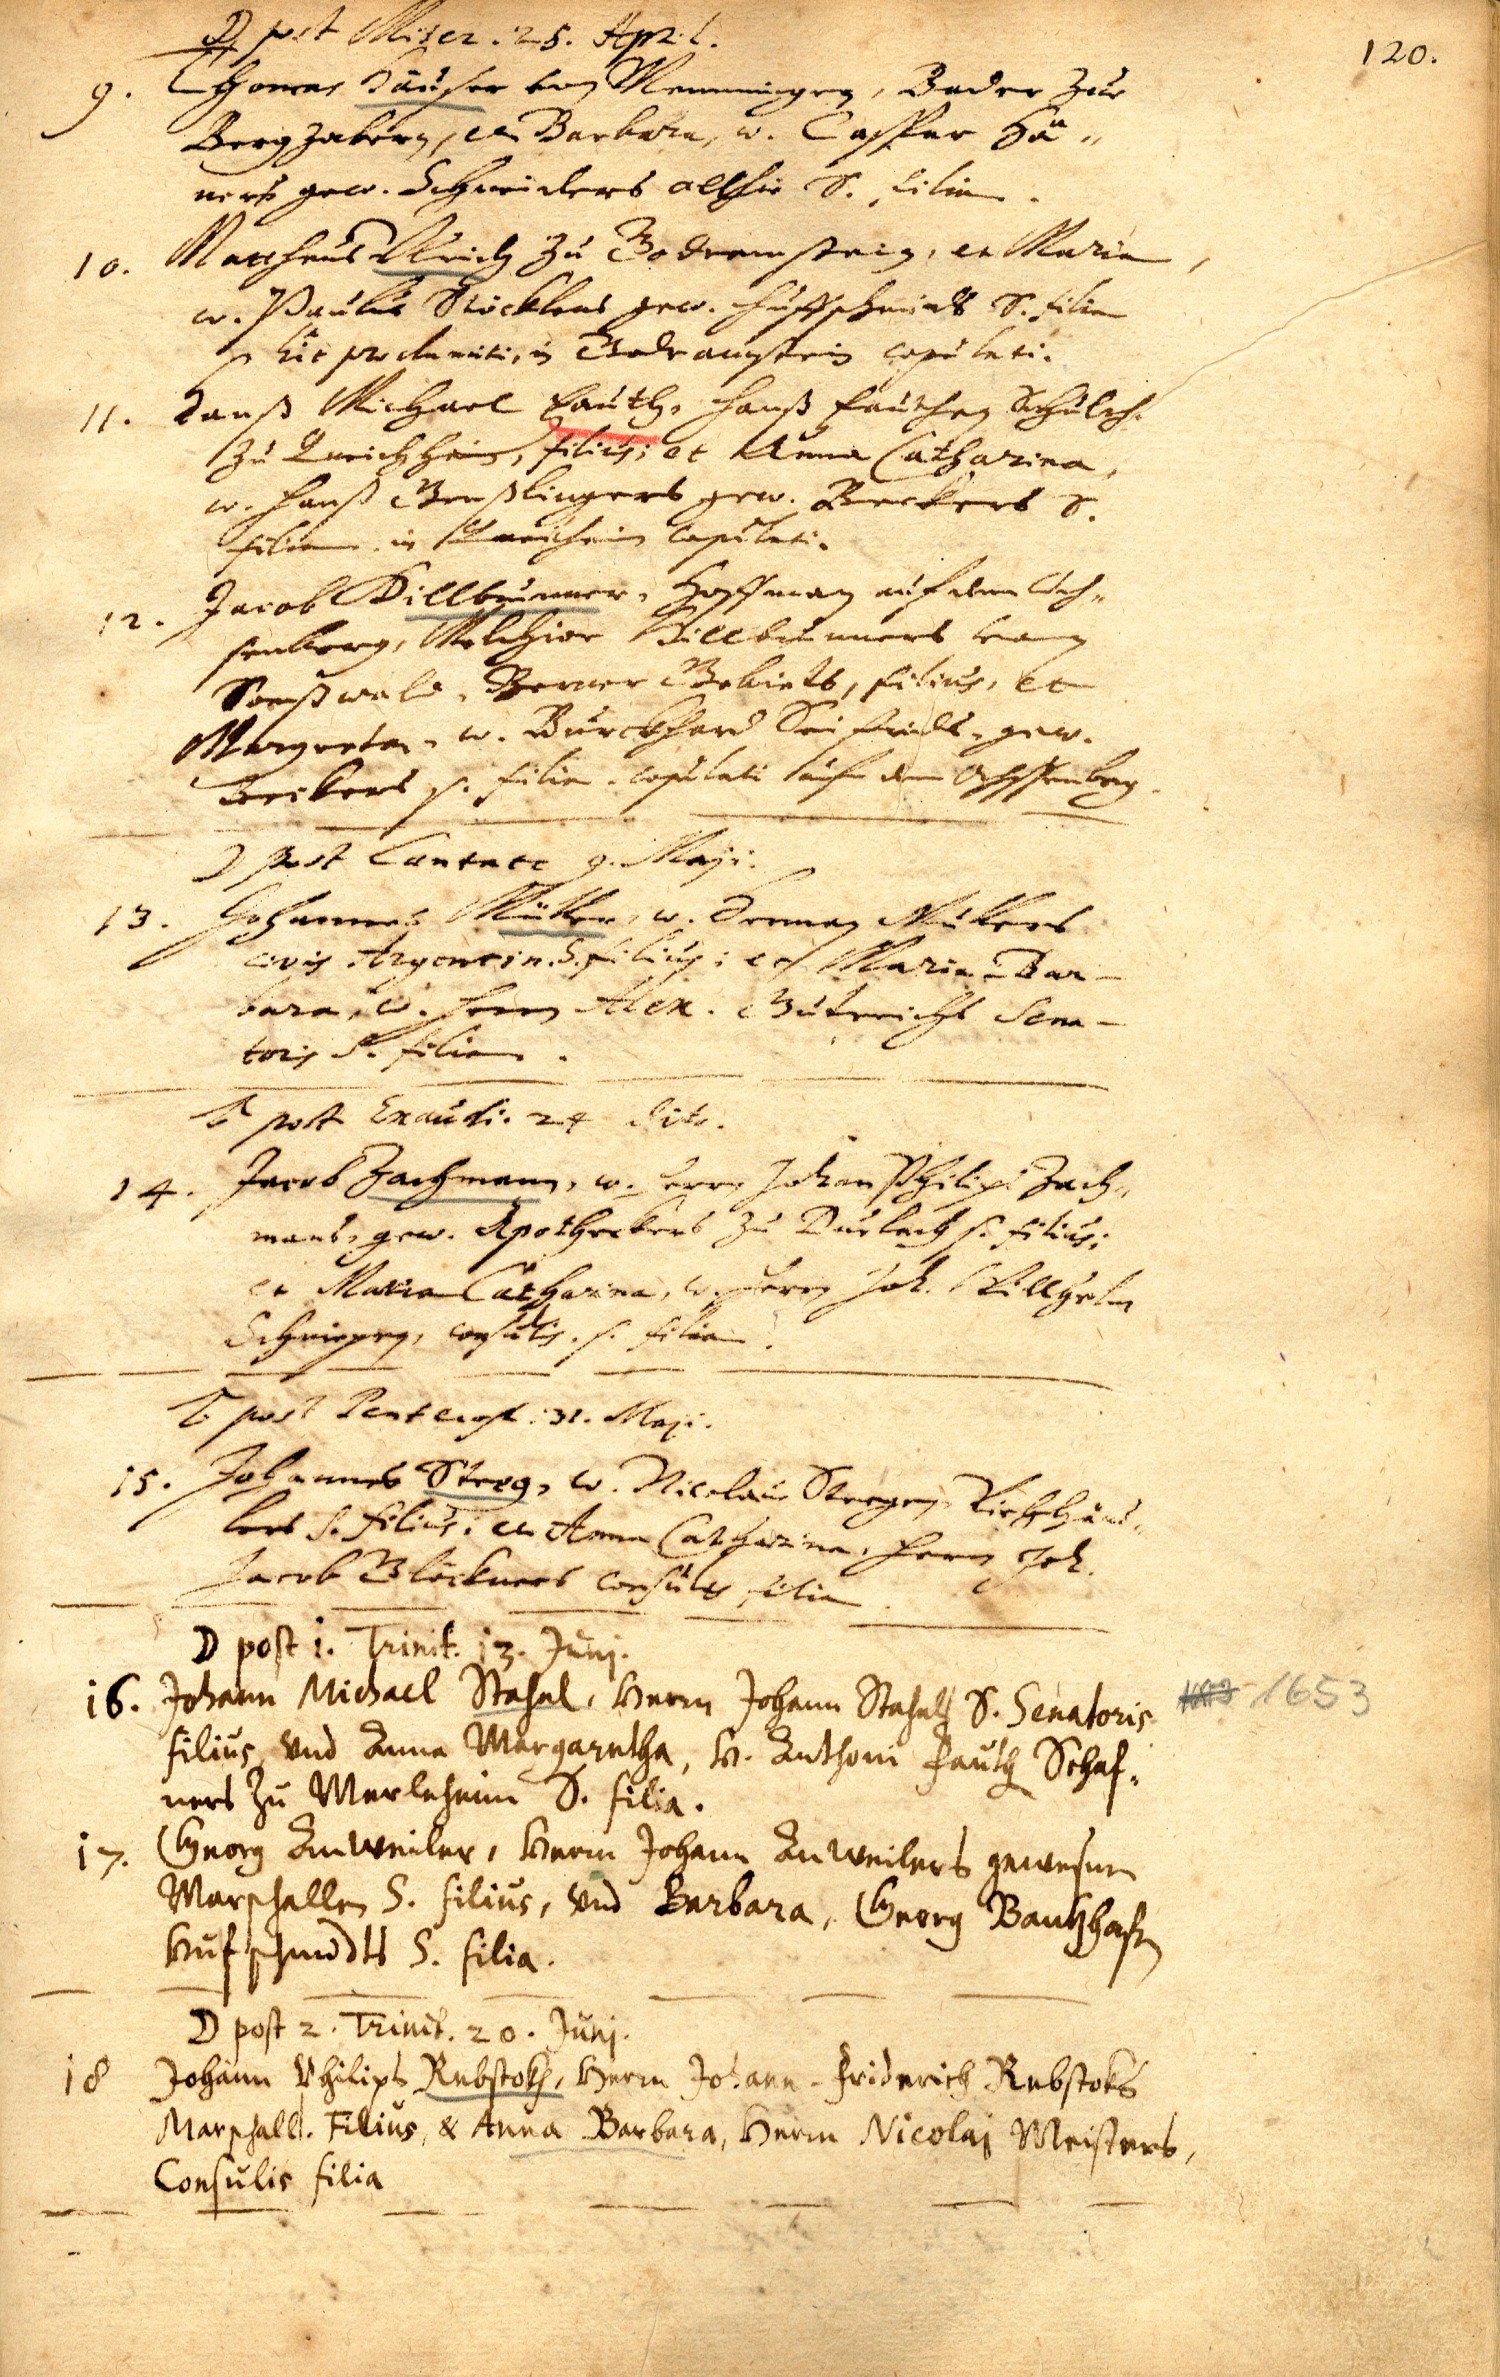 120.
D post Miser. 25. April.
9. Thomas Häuser von Memmingen, Bader zue
Bergzabern, et Barbara, w. Casper Hä"
ners gew. Schneiders allhie S. filia.
10. Mattheus Ulrich zu Godramstein, et Maria
w. Paulus Stöcklens gew. Huffschmidts S. filia
hic proclamati, in Godramstein copulati.
11. Hanß Michael Fauth, Hanß Fauthen Schulth.
zu filius; et Anna Catharina,
w. Hanß Geußlingers gew. Beckers S.
filia in copulati.
12. Jacob Dillbrunner, Hoffman auf dem Och"
senberg, Melchior Dillbrunners von
Berner Gebiets, filius, et
Margreta, w. Burckhard Seifrids, gew.
Beckers s. filia. copulati auf dem Ochssenberg.
D post Cantate 9. Maji.
13. Johannes Müller, w. Herman Müllers
civis Argentin. S. filius; et Maria Bar-
bara, w. Herrn Alex. Gutreichs Sena-
toris S. filia.
post Exaudi. 24 dito.
14. Jacob Zachmann, w. Herrn Johan Philips Zach"
mans, gew. Apotheckers zu Durlach s. filius;
et Maria Catharina, w. Herrn Joh. Willhelm
consulis. s. filia.
post Pentecost. 31. Maji.
15. Johannes Steeg, w. Nicolaus Steegen,
lers s. filius; et Anna Catharina, Herrn Joh.
Jacob Glöckners consulis filia.
D post 1. Trinit. 13. Junj.
16. Johann Michael Stahel, Herrn Johann Stahels S. Senatoris 1653
filius, Vnd Anna Margaretha, H. Anthoni Fauth Schaf"
ners zu Merleheim S. filia.
17. Georg Anweiler, Herrn Johann Anweilers gewesnen
Marschallen S. filius, Vnd Barbara, Georg
Hufschmidts S. filia.
D post 2. Trinit. 20. Junj.
18 Johann Philips Rebstokh, Herrn Johann Friderich Rebstoks
Marschall. Filius, & Anna Barbara, Herrn Nicolaj Meisters,
Consulis filia